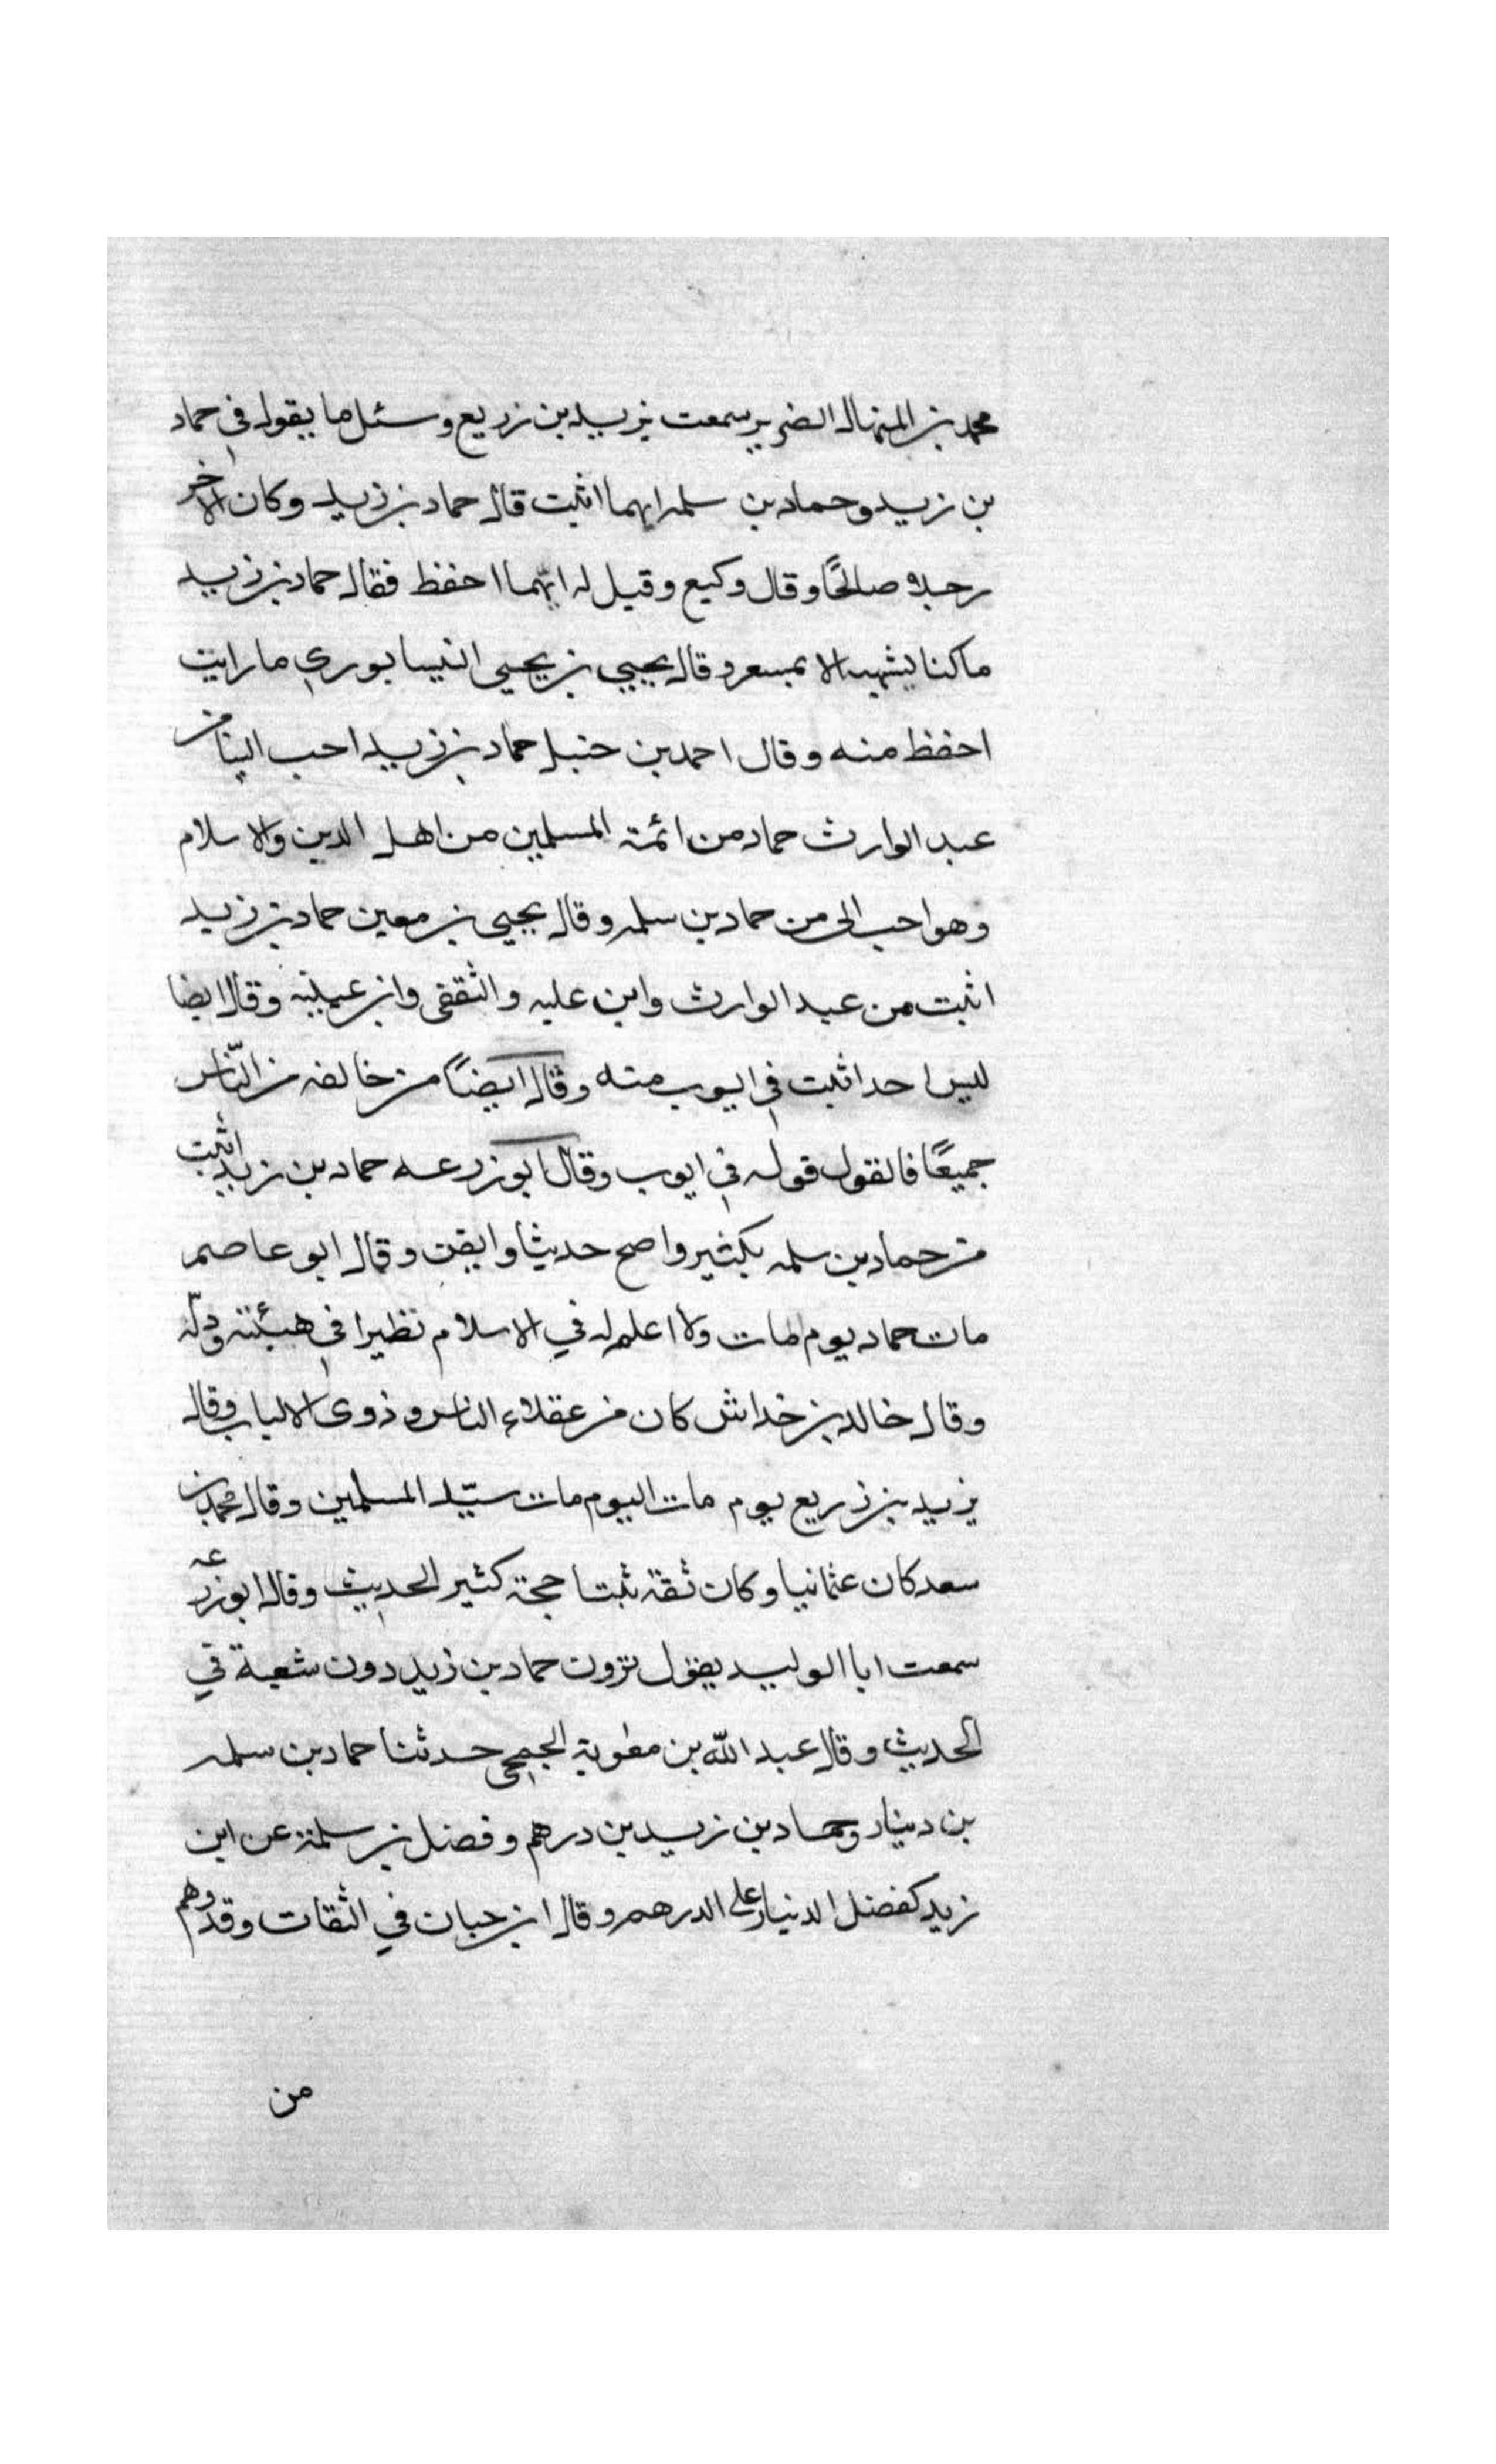 محمد بن المنهال الضرير سمعت يزيد بن زريع وسئل ما يقول في حماد
بن زيد وحماد بن سلمه ايهما اثبت قال حماد بن زيد وكان الاخر
رجلا صالحًا وقال وكيع وقيل له ايّهما احفظ فقال حماد بن زيد
ما كنا يشبهه الا بمسعر وقال يحيى بن يحيى النيسابوري ما رايت
احفظ منه وقال احمد بن حنبل حماد بن زيد احب الينا من
عبد الوارث حماد من ائمة المسلمين من اهل الدين والاسلام
وهو احب الى من حماد بن سلمه وقال يحيى بن معين حماد بن زيد
اثبت من عبد الوارث وابن عليه والثقفى وابن عيينه وقال ايضا
ليس احد اثبت في ايوب منه وقال ايضًا من خالفه من النّاس
جميعًا فالقول قوله في ايوب وقال ابو زرعه حماد بن زيد اثبت
من حماد بن سلمه بكثير واصح حديثا وايقن وقال ابو عاصم
مات حماد يوم مات ولا اعلم له في الاسلام نظيرا في هيئته ودلّه
وقال خالد بن خداش كان من عقلاء الناس وذوى الالباب وقال
يزيد بن زريع يوم مات اليوم مات سيّد المسلمين وقال محمد بن
سعد كان عثمانيا وكان ثقة ثبتا حجة كثير الحديث وقال ابو زرعه
سمعت ابا الوليد يقول ترون حماد بن زيد دون شعبة في
الحديث وقال عبد اللّه بن معٰوية الجمحى حدثنا حماد بن سلمه
بن دينار وحماد بن زيد بن درهم وفضل بن سلمة عن ابن
زيد كفضل الدنيار على الدرهم وقال ابن حبان في الثقات وقد وهم
من